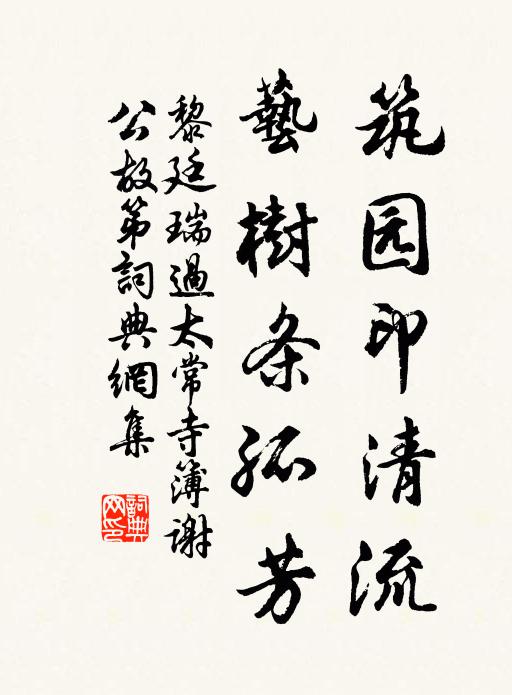 筑园印清流
藝樹条孤芳
黎廷瑞過太常寺簿謝
公故第詞典網集
詞典網印